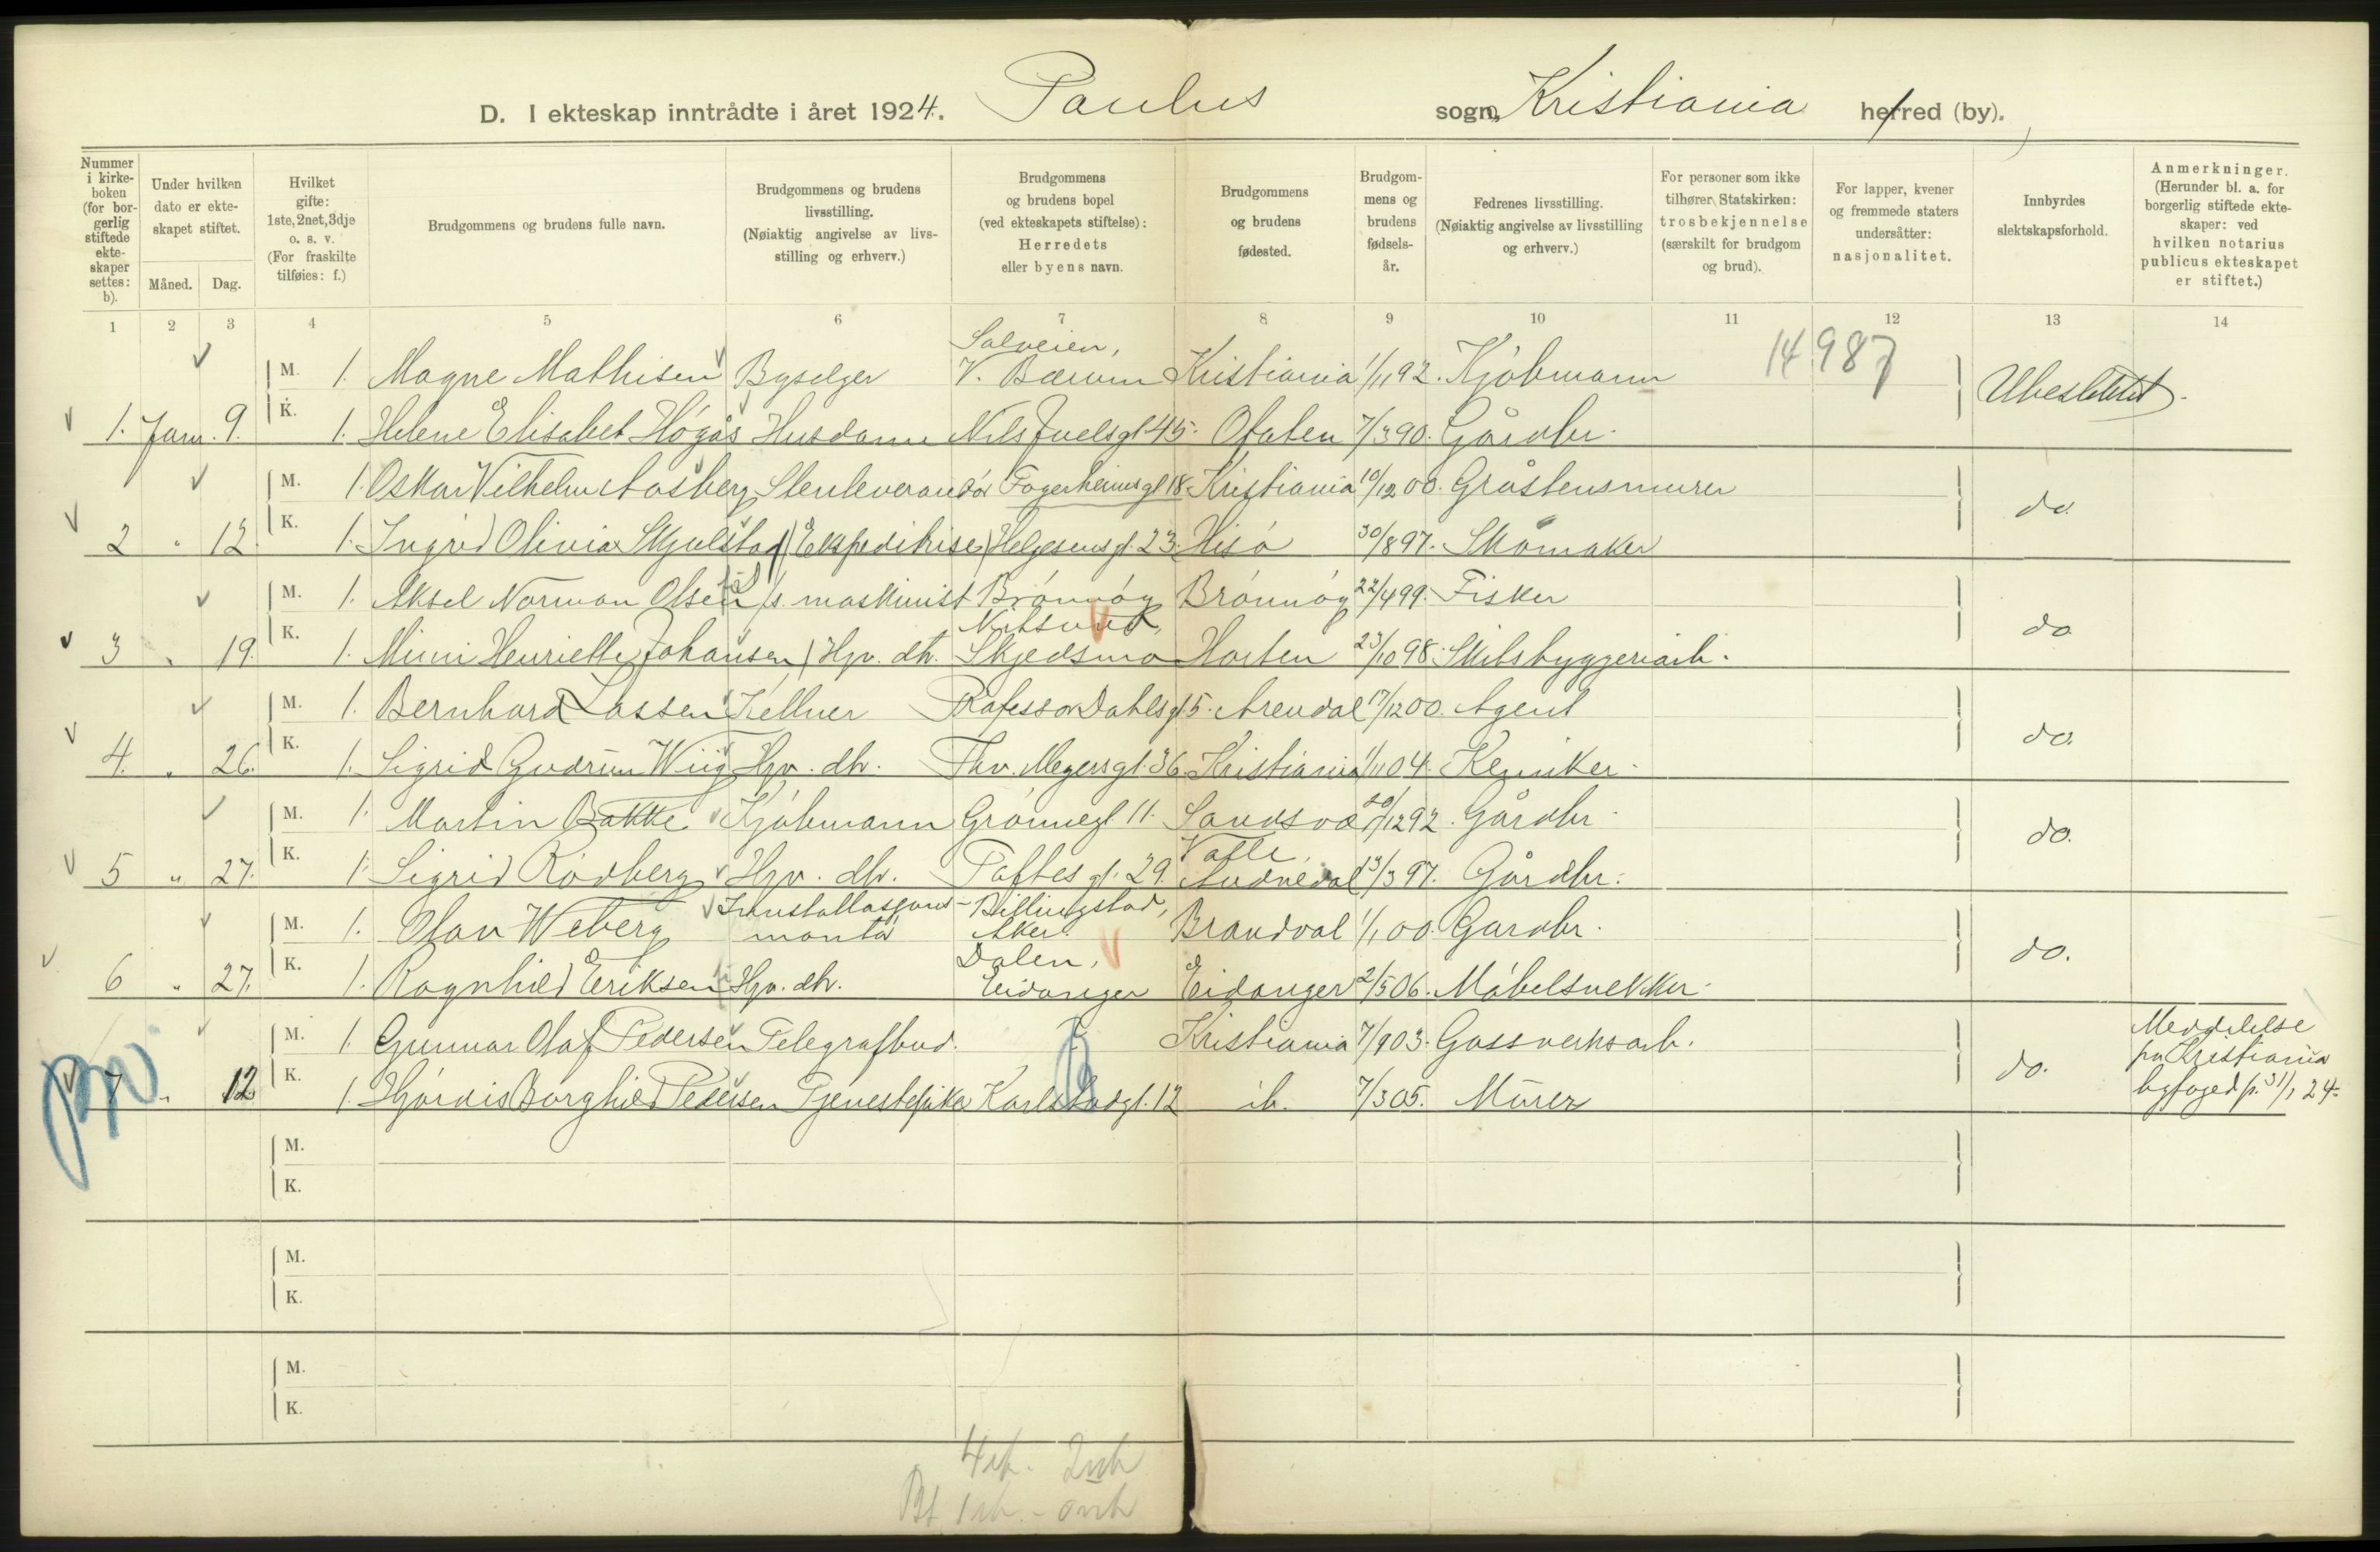 D. I ekteskap inntrådte i året 1924. Paulus sogn, Kristiania herred (by).
Nummer i kirkeboken (for borgerlig stiftede ekteskaper settes: b).
Under hvilken dato er ekteskapet stiftet.
Måned. Dag.
Hvilket gifte: 1ste, 2net, 3dje o. s. v. (For fraskilte tilføies: f.)
Brudgommens og brudens fulle navn.
Brudgommens og brudens livsstilling. (Nøiaktig angivelse av livsstilling og erhverv.)
Brudgommens og brudens bopel (ved ekteskapets stiftelse): Herredets eller byens navn.
Brudgommens og brudens fødested.
Brudgommens og brudens fødselsår.
Fedrenes livsstilling. (Nøiaktig angivelse av livsstilling og erhverv.)
For personer som ikke tilhører Statskirken: trosbekjennelse (særskilt for brudgom og brud).
For lapper, kvener og fremmede staters undersåtter: nasjonalitet.
Innbyrdes slektskapsforhold.
Anmerkninger. (Herunder bl. a. for borgerlig stiftede ekteskaper: ved hvilken notarius publicus ekteskapet er stiftet.)
1 2 3 4 5 6 7 8 9 10 11 12 13 14
14987
M. 1. Magne Mathisen Byselger Solveien, V. Bærum Kristiania 1/11 92. Kjøbmann
1. Jan. 9. K. 1. Helene Elisabet Høgås Husdame Nils Juelsgt 45. Ofoten 7/3 90. Gårdbr. Ubeslektet.
M. 1. Oskar Vilhelm Aasberg Stenleverandør Fagerheimsgt 18. Kristiania 10/12 00. Gråstensmurer
2 " 12. K. 1. Ingrid Olivia Skjulstad Ekspeditrise Helgesensgt. 23. Hisø 30/8 97. Skomaker do.
M. 1. Aksel Norman Olsen maskinist Brønnøy Brønnøy 22/4 99. Fisker
3 " 19. K. 1. Mimi Henriette Johansen Hjv. dh. Skjedsmo Horten 23/10 98. Skibsbyggeriarb. do
M. 1. Bernhard Lassen Kellner Professor Dahlsgt. 5. Arendal 17/12 00. Agent
4. " 26. K. 1. Sigrid Gudrun Wiig Hjv. dh. Thv. Meyersgt. 36 Kristiania 1/11 04. Kemiker. do.
M. 1. Martin Bakke Kjøbmann Grønnegt. 11. Sandsvær 20/12 92. Gårdbr.
5 " 27. K. 1. Sigrid Rødberg Hjv. dh. Toftes gt. 29. Valle, Audnedal 13/3 97. Gårdbr. do.
M. 1. Olav Weberg Installasjonsmontør Billingstad, Asker. Brandval 1/1 00. Gardbr.
6 " 27. K. 1. Ragnhild Eriksen Hjv. dh. Dalen, Eidanger Eidanger 2/5 06. Møbelsnekker. do.
M. 1 Gunnar Olaf Pedersen Telegrafbud. Kristiania 7/9 03. Gassverksarb.
7 " 12 K. 1. Hjørdis Borghild Pedersen Tjenestepike Karlstadgt. 12 ib. 7/3 05. Murer do.
Meddelelse
fra Kristiania
byfoged p. 31/1 24.
M.
K.
M.
K.
M.
K.